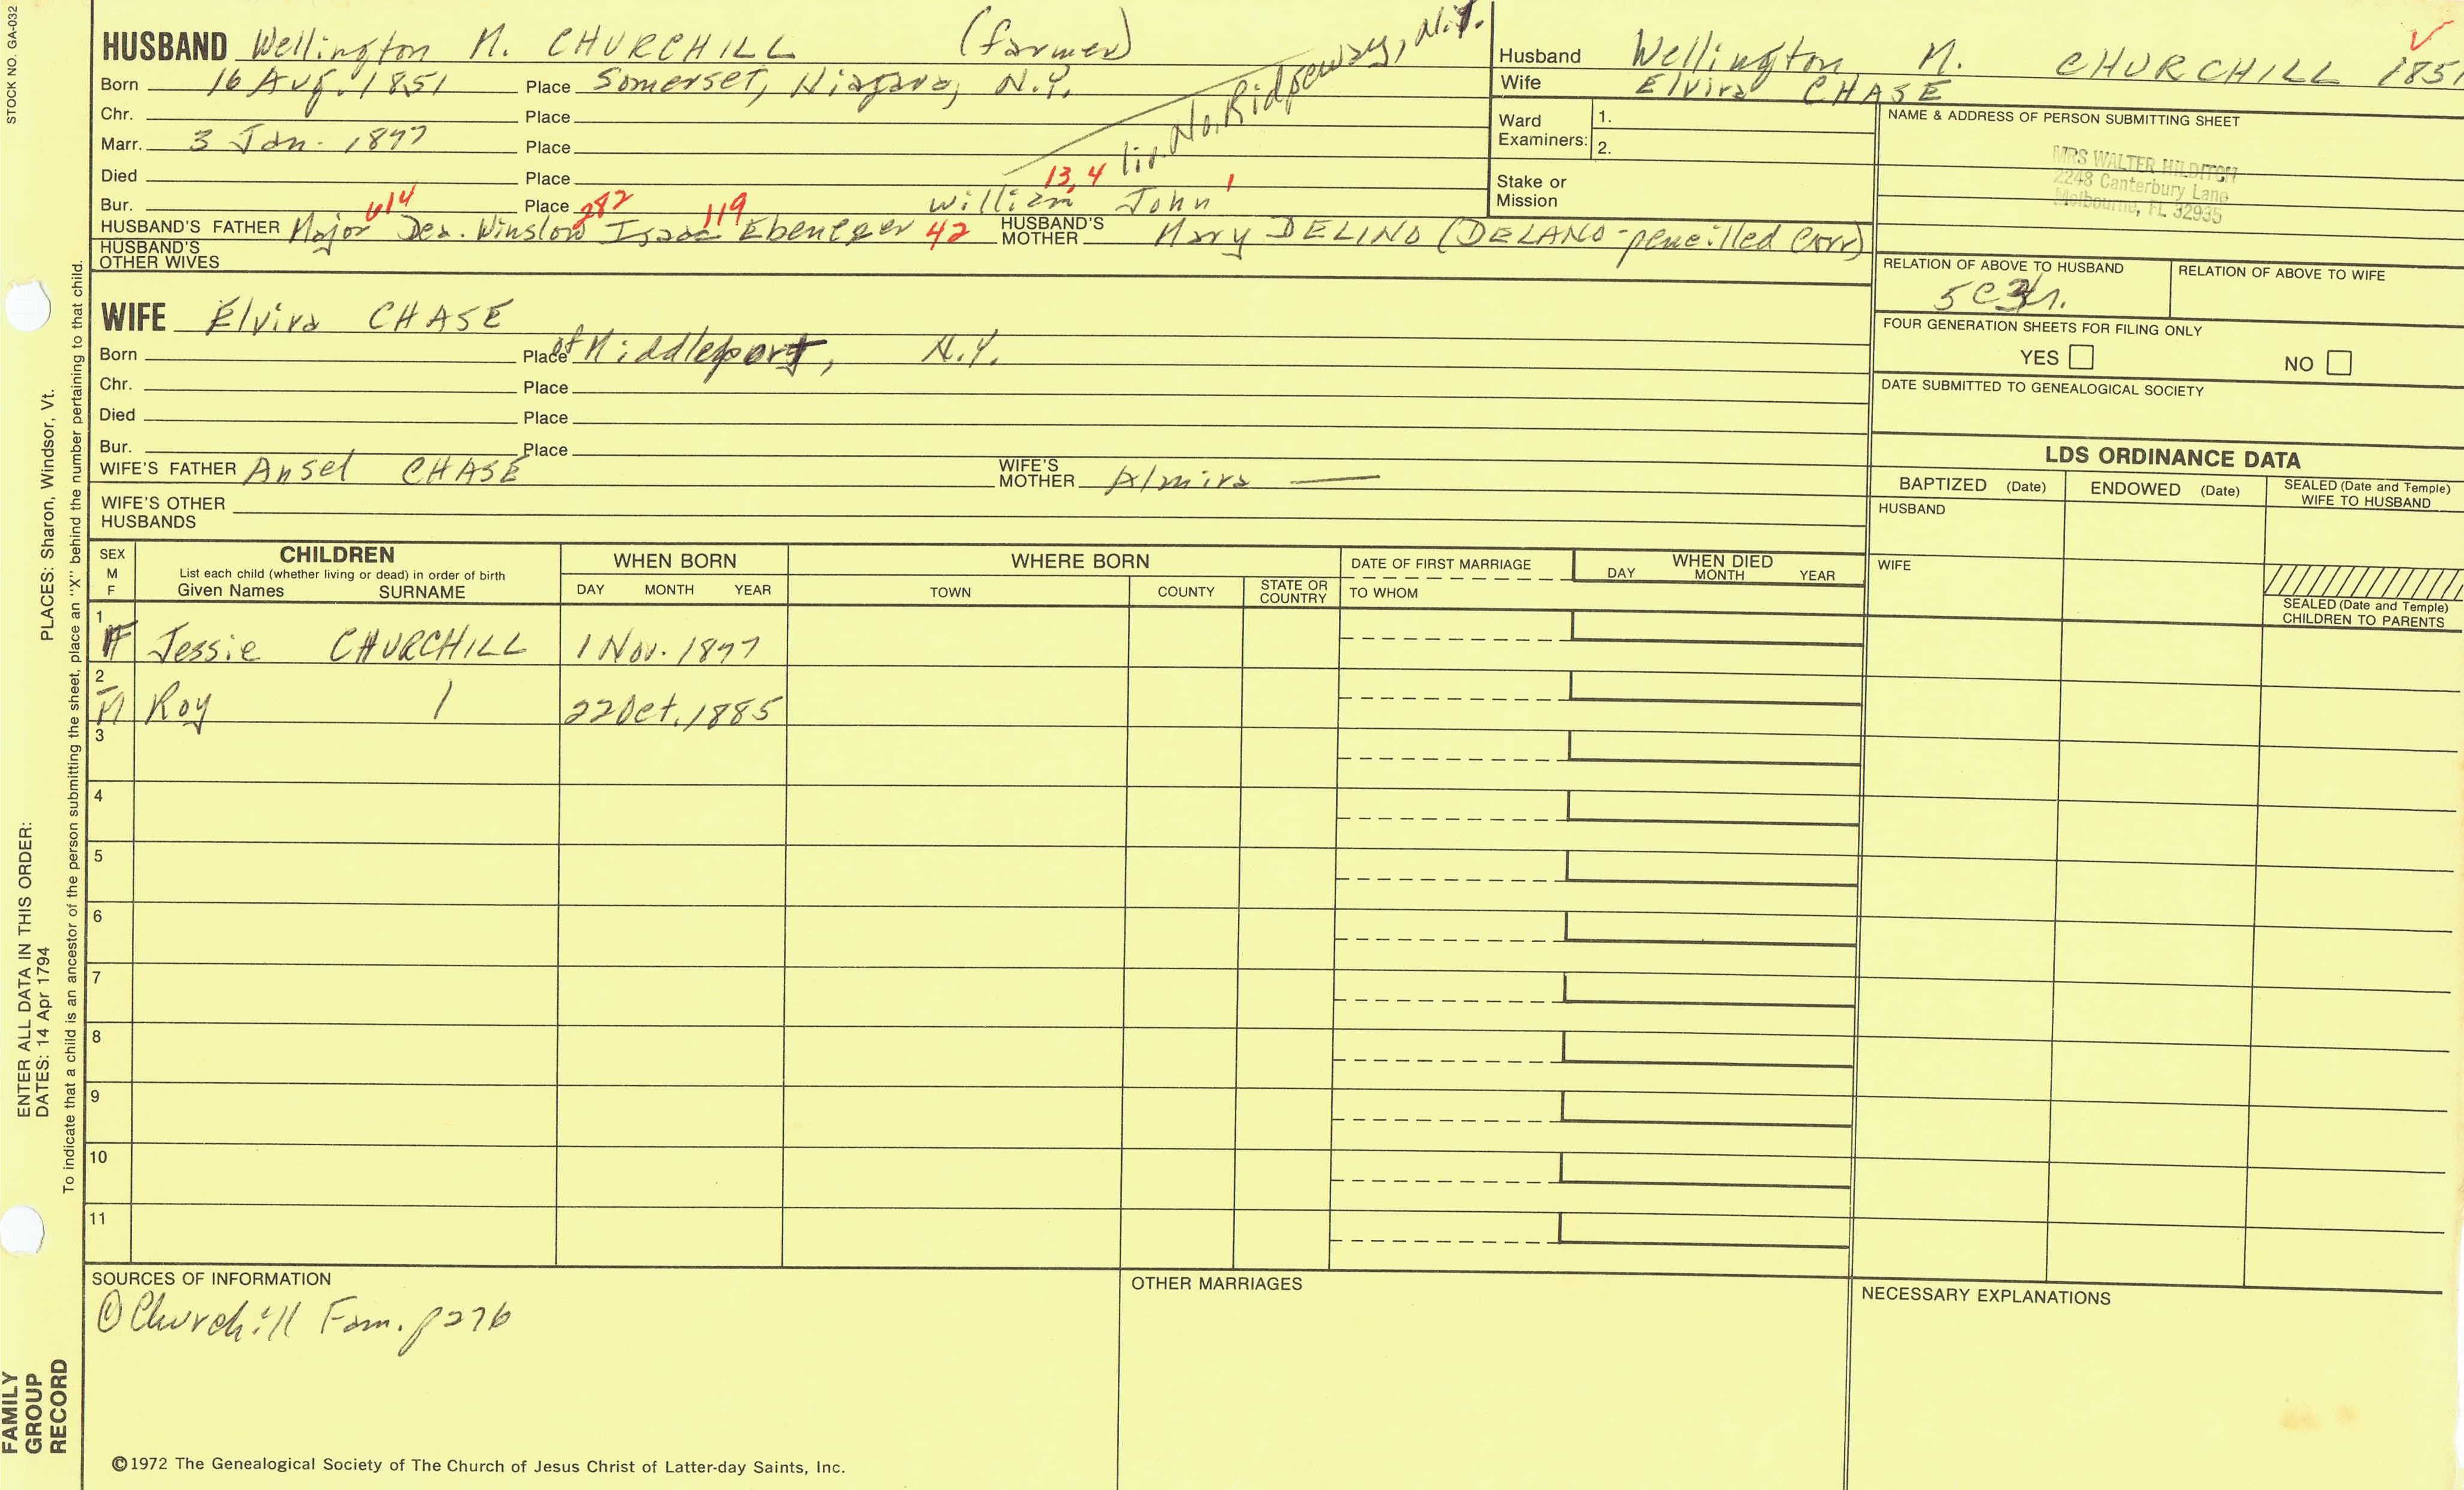 STOCK NO. GA-032
HUSBAND Wellington M. CHURCHILL (farmer)
Born 16 Aug. 1851 Place Somerset, Niagara, N.Y.
liv. No. Ridgeway, N.Y.
Chr. Place
Marr. 3 Jan. 1877 Place
Died Place
Bur. Place
614 282 119 William 13, 4 John 1
HUSBAND'S FATHER Major Dea. Winslow Isaac Ebenezer 42 HUSBAND'S MOTHER Mary DELINO (DELANO-pencilled corr)
HUSBAND'S OTHER WIVES
WIFE Elvira CHASE
Born Place of Middleport, N.Y.
Chr. Place
Died Place
Bur. Place
WIFE'S FATHER Ansel CHASE WIFE'S MOTHER Almira —
WIFE'S OTHER HUSBANDS
Husband Wellington M. CHURCHILL 1851
Wife Elvira CHASE
Ward Examiners: 1.
2.
Stake or Mission
NAME & ADDRESS OF PERSON SUBMITTING SHEET
MRS WALTER HILDITCH
2248 Canterbury Lane
Melbourne, FL 32935
RELATION OF ABOVE TO HUSBAND RELATION OF ABOVE TO WIFE
FOUR GENERATION SHEETS FOR FILING ONLY
YES NO
DATE SUBMITTED TO GENEALOGICAL SOCIETY
LDS ORDINANCE DATA
BAPTIZED (Date) ENDOWED (Date) SEALED (Date and Temple) WIFE TO HUSBAND
HUSBAND
WIFE
SEALED (Date and Temple) CHILDREN TO PARENTS
SEX M F CHILDREN WHEN BORN WHERE BORN DATE OF FIRST MARRIAGE WHEN DIED
List each child (whether living or dead) in order of birth
Given Names SURNAME DAY MONTH YEAR TOWN COUNTY STATE OR COUNTRY TO WHOM DAY MONTH YEAR
1 F Jessie CHURCHILL 1 Nov. 1877
2 M Roy 22 Oct. 1885
3
4
5
6
7
8
9
10
11
SOURCES OF INFORMATION
① Churchill Fam. p276
OTHER MARRIAGES
NECESSARY EXPLANATIONS
©1972 The Genealogical Society of The Church of Jesus Christ of Latter-day Saints, Inc.
FAMILY GROUP RECORD
ENTER ALL DATA IN THIS ORDER:
DATES: 14 Apr 1794
PLACES: Sharon, Windsor, Vt.
To indicate that a child is an ancestor of the person submitting the sheet, place an "X" behind the number pertaining to that child.